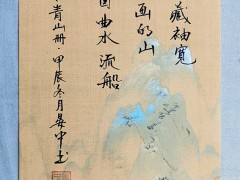 藏袖寬
画的山
曲水流船
青山册·甲辰冬月晏中书